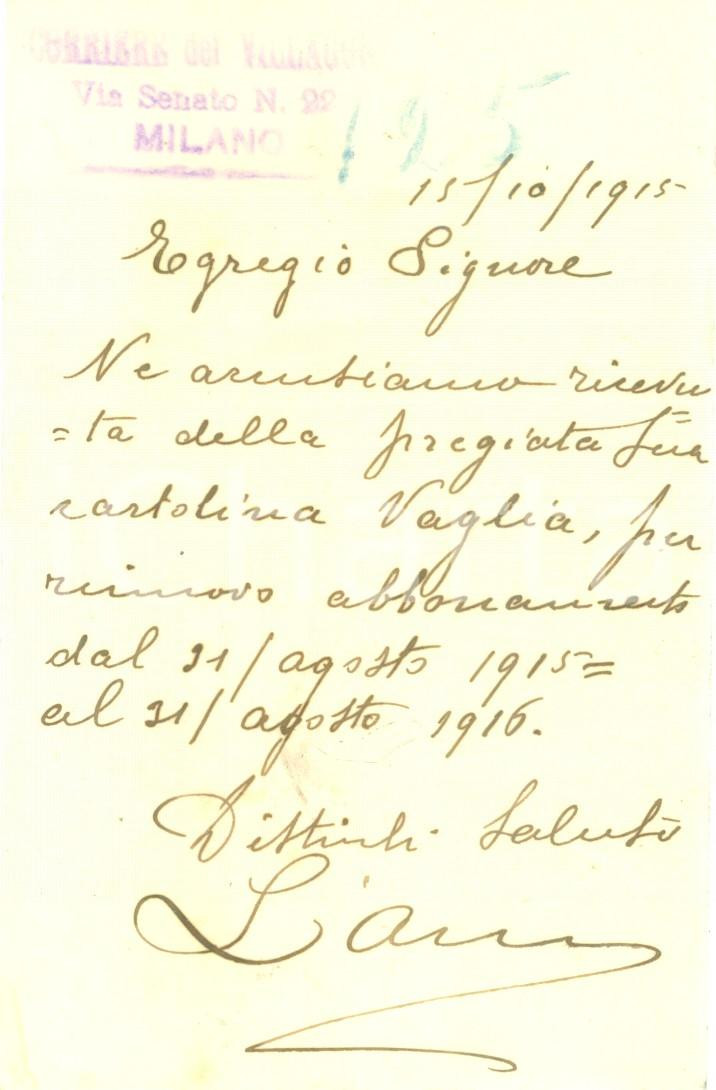 CORRIERE del VILLAGGIO
Via Senato N. 22
MILANO
125
15/10/1915
Egregio Signore
Ne accusiamo ricevu
=ta della pregiata Sua
cartolina Vaglia, per
rinnovo abbonamento
dal 31/agosto 1915=
al 31/agosto 1916.
Distinti Saluti
L'Amm